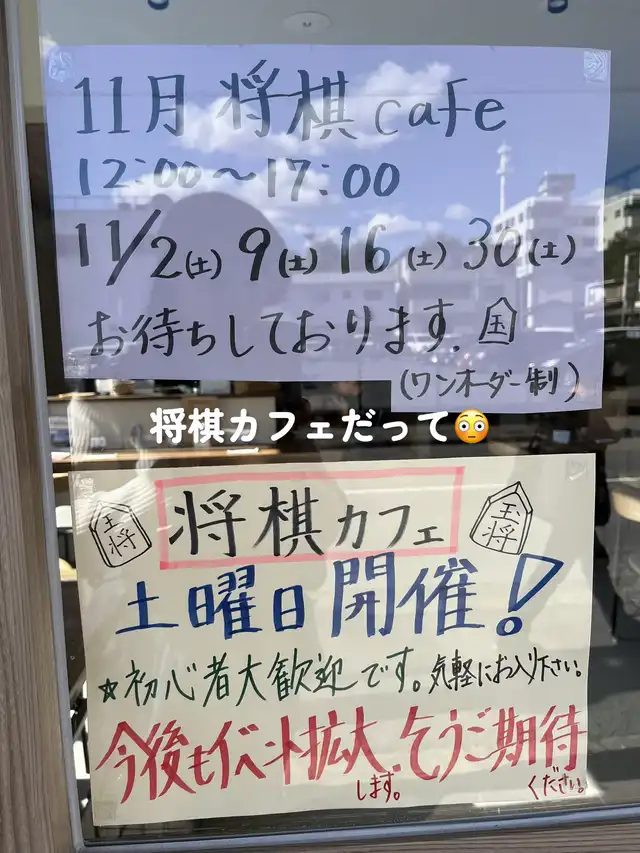 11月 将棋cafe
12:00～17:00
11/2(土) 9(土) 16(土) 30(土)
お待ちしております.
(ワンオーダー制)
将棋カフェだって😳
王将 将棋カフェ 玉将
土曜日開催!
☆初心者大歓迎です。気軽にお入り下さい。
今後もイベント拡大します。乞うご期待ください。